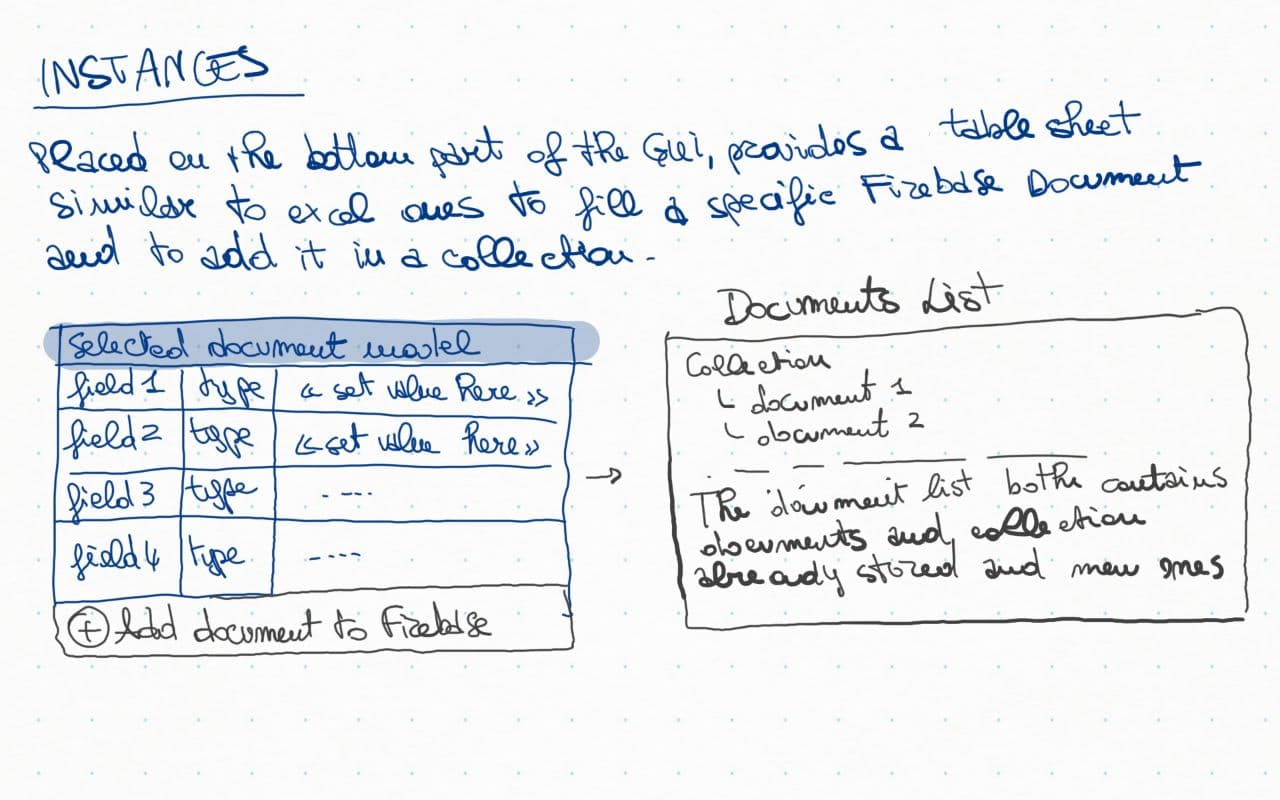 INSTANCES
Placed on the bottom part of the GUI, provides a table sheet
similar to excel ones to fill a specific Firebase Document
and to add it in a collection.
Selected document model
field 1 type << set value here >>
field 2 type << set value here >>
field 3 type ....
field 4 type ....
+ Add document to Firebase
→
Documents List
Collection
└ document 1
└ document 2
The document list both contains
documents and collection
already stored and new ones